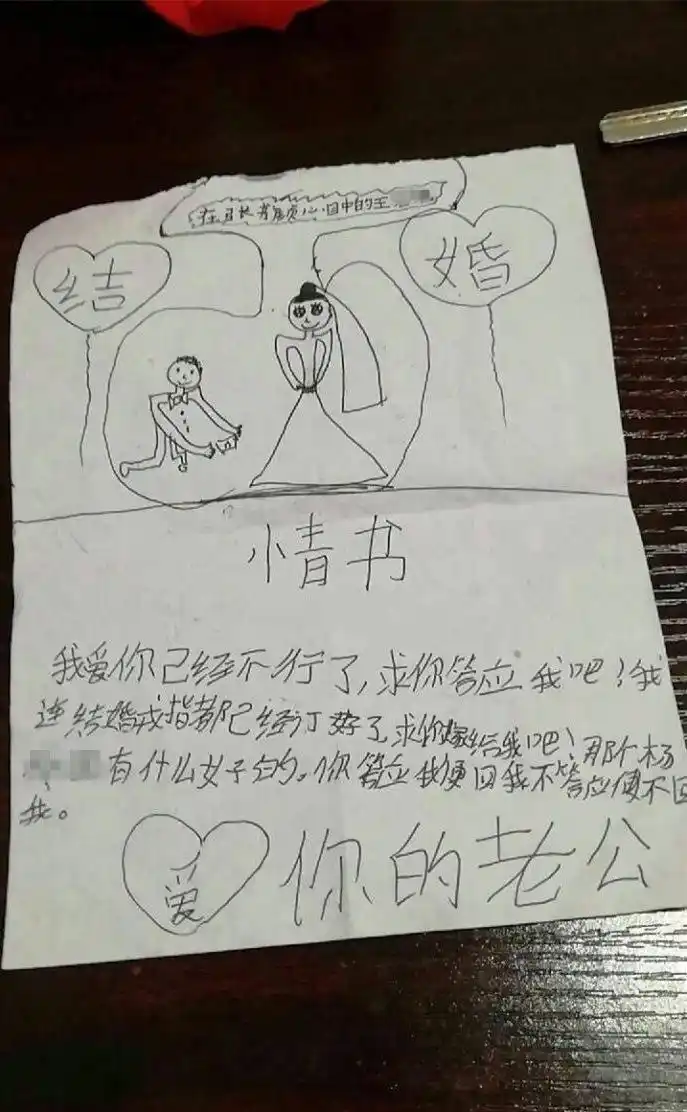 在张心目中的王
结
婚
情书
我爱你已经不行了,求你答应我吧!我
连结婚戒指都已经订好了,求你嫁给我吧!那个杨
有什么女子的。你答应我便回我不答应便不回
我。
爱 你的老公